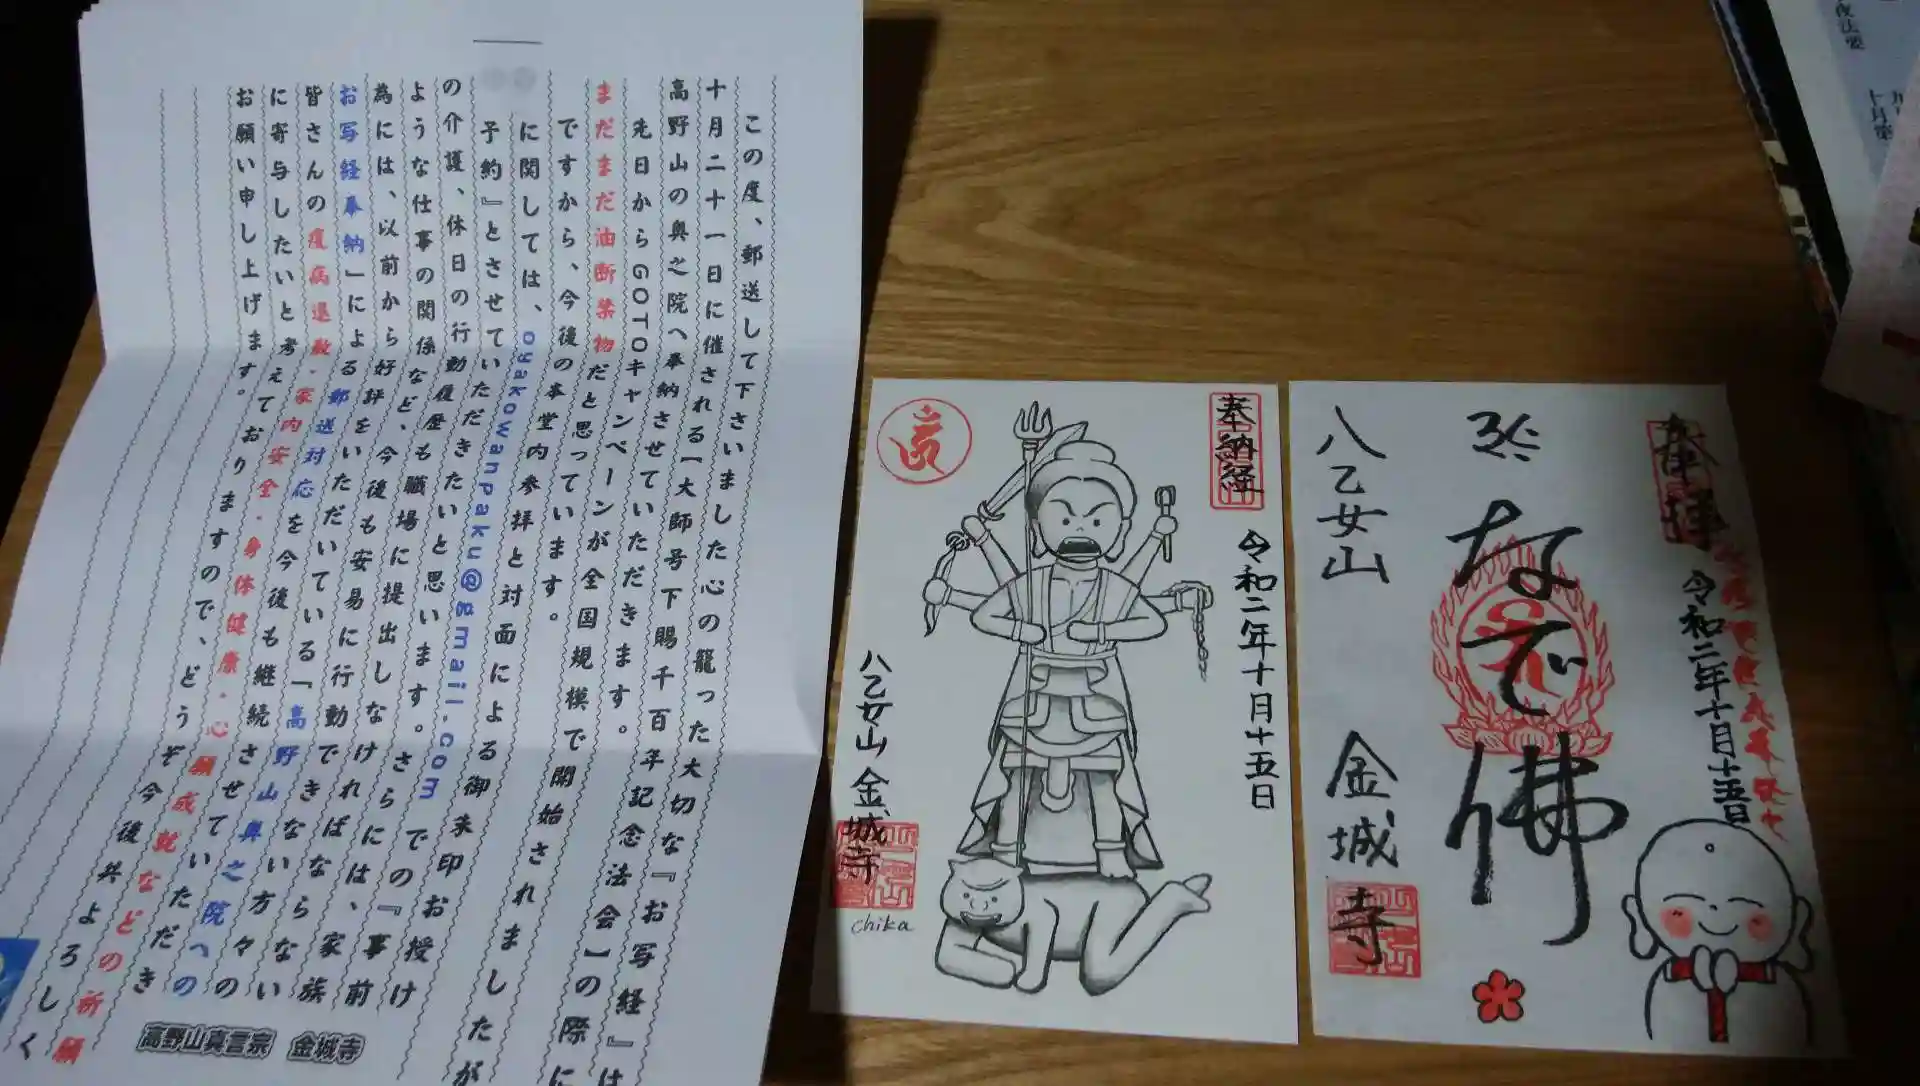 この度、郵送して下さいました心の籠った大切な『お写経』は
十月二十一日に催される【大師号下賜千百年記念法会】の際に
高野山の奥之院へ奉納させていただきます。
先日からGOTOキャンペーンが全国規模で開始されましたが
まだまだ油断禁物だと思っています。
ですから、今後の本堂内参拝と対面による御朱印お授け
に関しては、oyakowanpaku@gmail.comでの『事前
予約』とさせていただきたいと思います。さらには、家族
の介護、休日の行動履歴も職場に提出しなければならない
ような仕事の関係など、今後も安易に行動できない方々の
為には、以前から好評をいただいている「高野山奥之院への
お写経奉納」による郵送対応を今後も継続させていただき
皆さんの疫病退散・家内安全・身体健康・心願成就などの祈願
に寄与したいと考えておりますので、どうぞ今後共よろしく
お願い申し上げます。
高野山真言宗 金城寺
奉納経
令和二年十月十五日
八乙女山 金城寺
chika
奉拝
令和二年十月十五日
なで佛
八乙女山 金城寺
夜法要